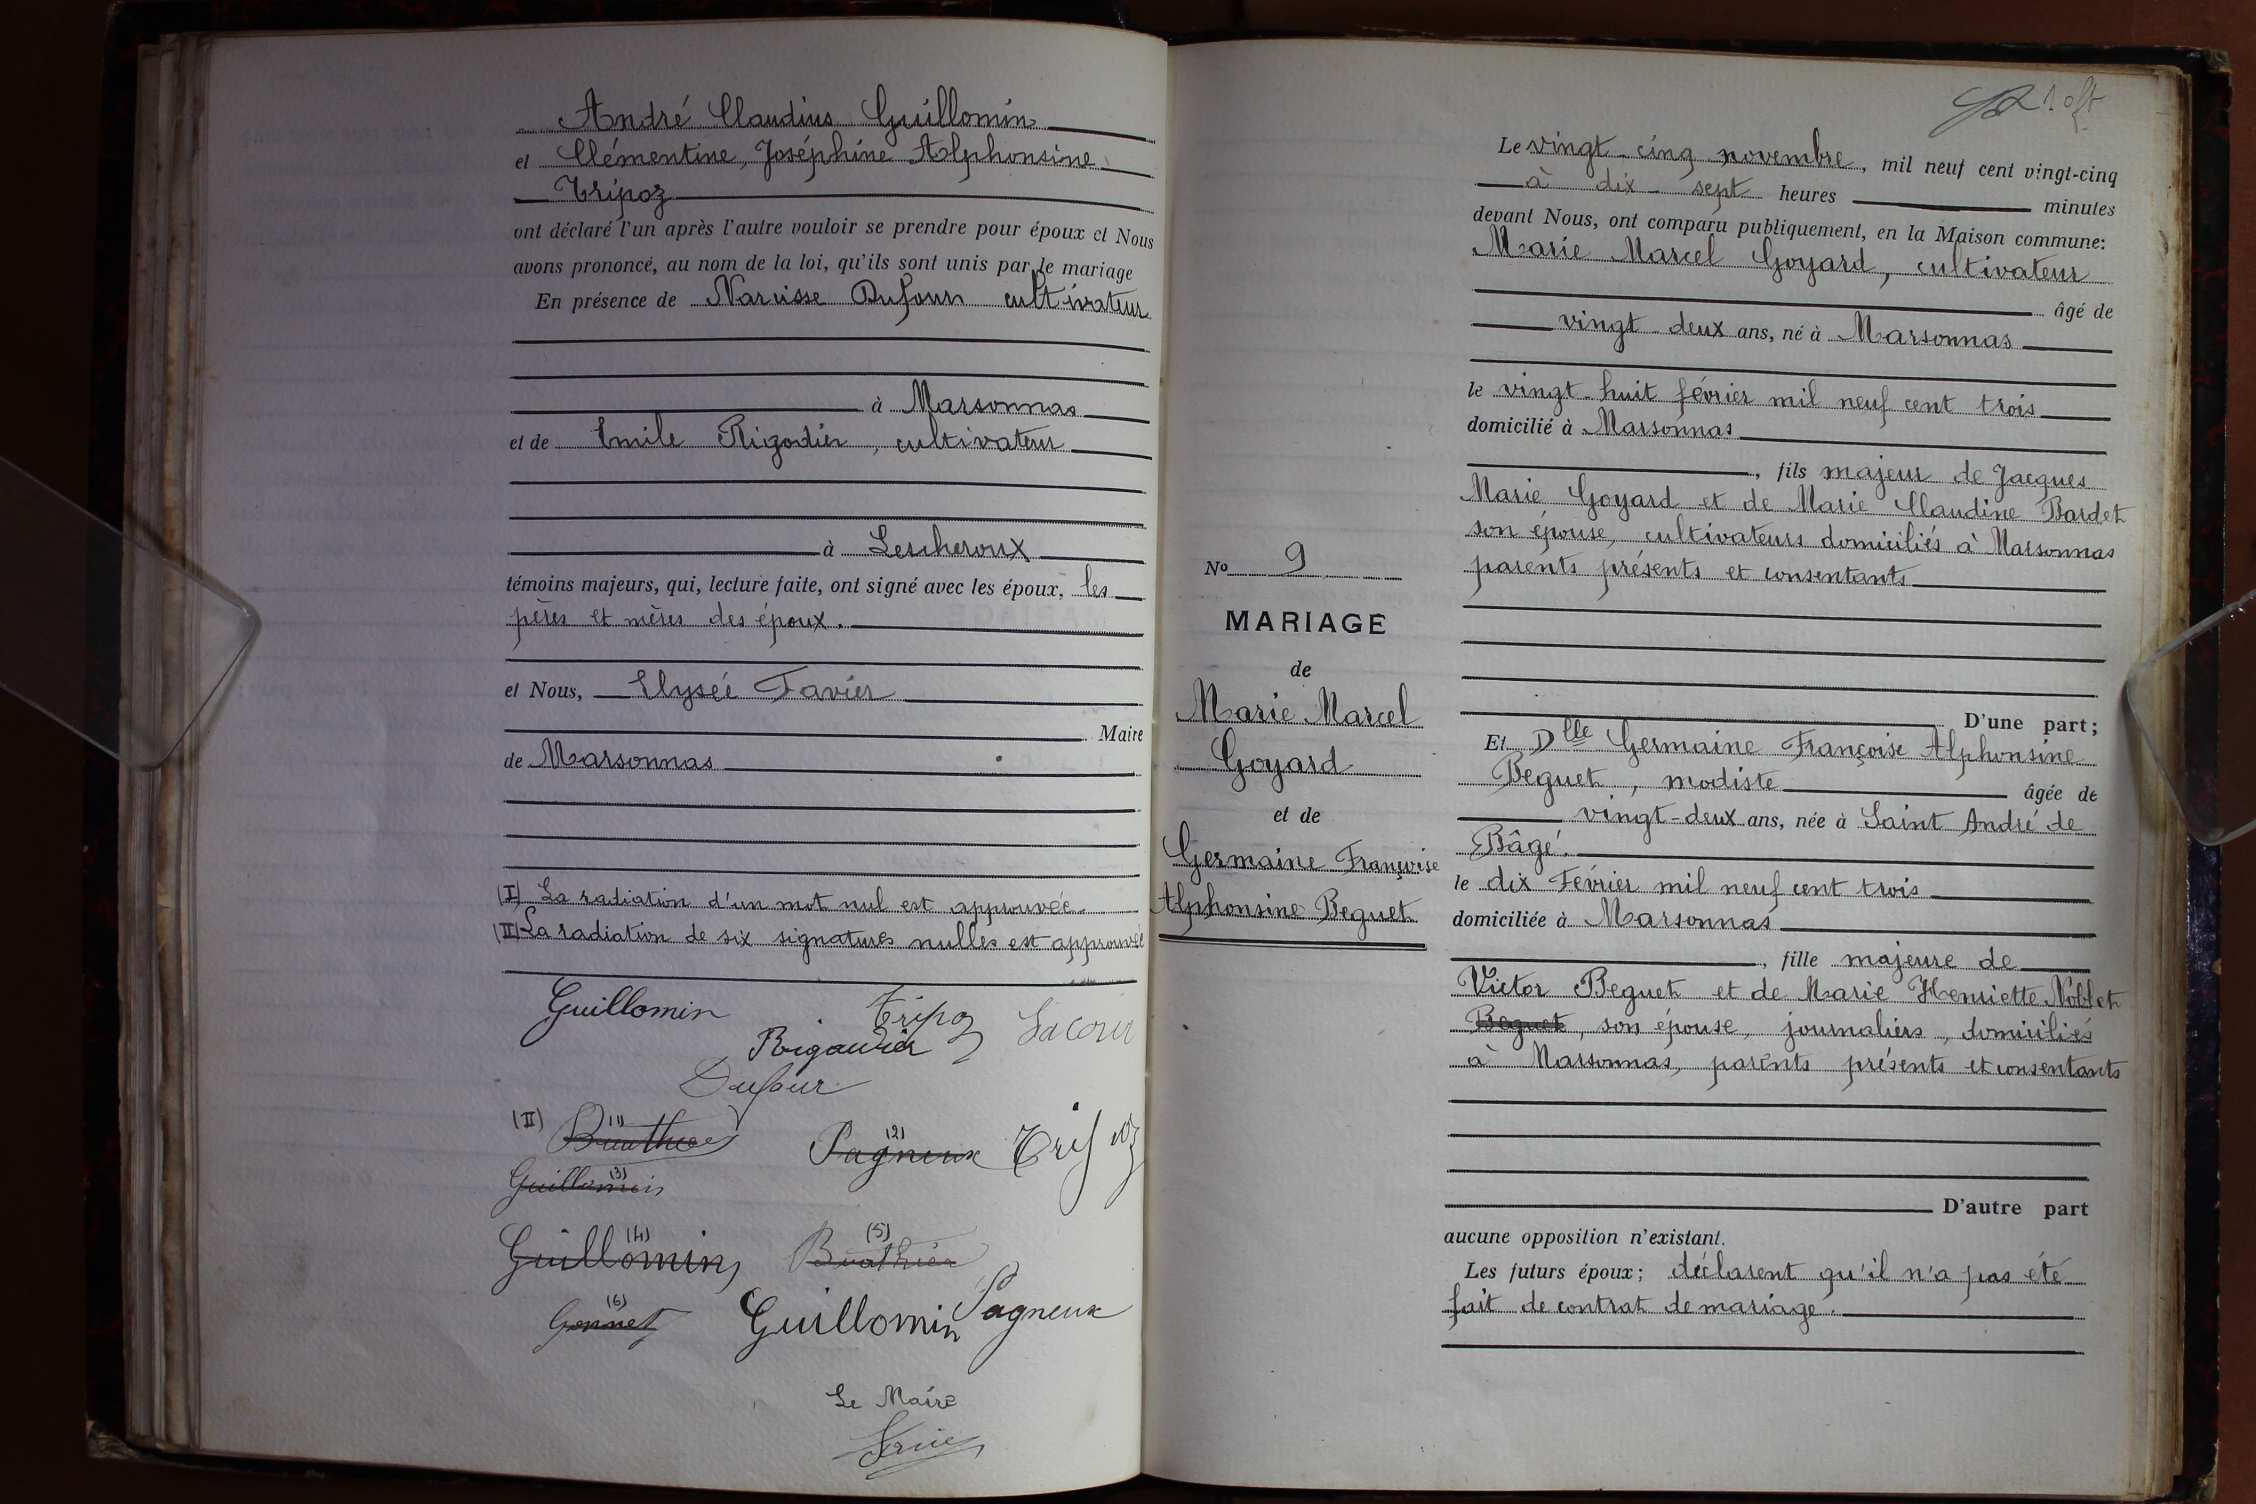 André Claudius Guillomin
et Clémentine, Joséphine Alphonsine
Tripoz
ont déclaré l'un après l'autre vouloir se prendre pour époux et Nous
avons prononcé, au nom de la loi, qu'ils sont unis par le mariage
En présence de Narcisse Dufour cultivateur
à Marsonnas
et de Emile Rigodier, cultivateur
à Lescheroux
témoins majeurs, qui, lecture faite, ont signé avec les époux, les
pères et mères des époux.
et Nous, Elysée Favier
Maire
de Marsonnas
(I) La radiation d'un mot nul est approuvée.
(II) La radiation de six signatures nulles est approuvée
Guillomin Tripoz Lacour
Rigaudier
Dufour
(II) (1) (2)
Pagneux Tripoz
(3)
Guillomin
(4) (5)
Guillomin Buathier
(6)
Gonnet Guillomin Pagneux
Le Maire
10
Le vingt-cinq novembre, mil neuf cent vingt-cinq
à dix-sept heures minutes
devant Nous, ont comparu publiquement, en la Maison commune:
Marie Marcel Goyard, cultivateur
âgé de
vingt-deux ans, né à Marsonnas
le vingt-huit février mil neuf cent trois
domicilié à Marsonnas
, fils majeur de Jacques
Marie Goyard et de Marie Claudine Bardet
son épouse, cultivateurs domiciliés à Marsonnas
parents présents et consentants
D'une part;
Et Dlle Germaine Françoise Alphonsine
Beguet, modiste âgée de
vingt-deux ans, née à Saint André de
Bâgé.
le dix Février mil neuf cent trois
domiciliée à Marsonnas
, fille majeure de
Victor Beguet et de Marie Henriette Noblet
Beguet, son épouse, journaliers, domiciliés
à Marsonnas, parents présents et consentants
D'autre part
aucune opposition n'existant.
Les futurs époux; déclarent qu'il n'a pas été
fait de contrat de mariage.
No 9
MARIAGE
de
Marie Marcel
Goyard
et de
Germaine Françoise
Alphonsine Beguet